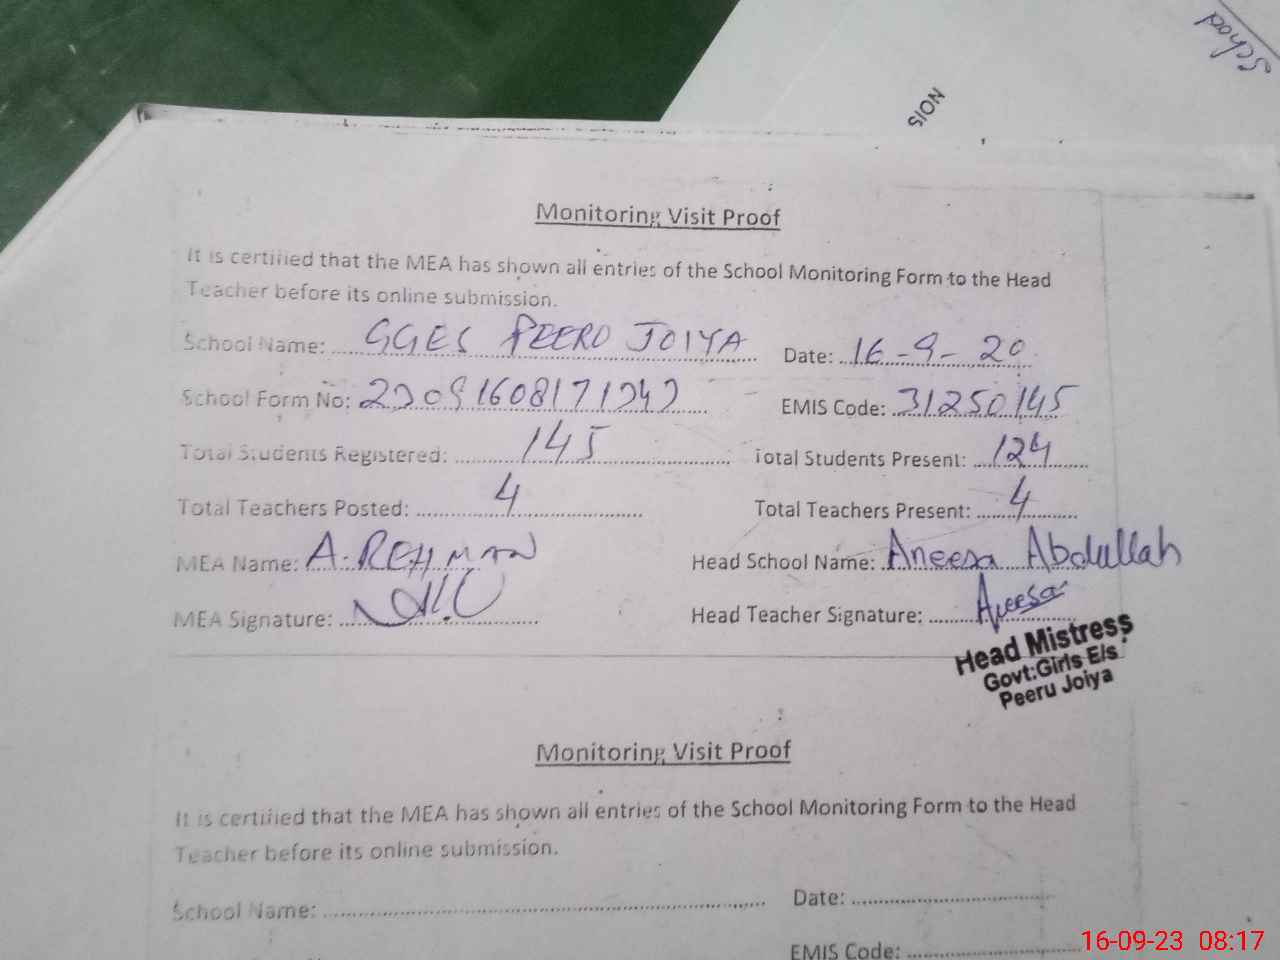 School
NOIS
Monitoring Visit Proof
It is certified that the MEA has shown all entries of the School Monitoring Form to the Head
Teacher before its online submission.
School Name: GGES PEERO JOIYA Date: 16-9-20
School Form No: EMIS Code: 31250145
Total Students Registered: 145 Total Students Present: 124
Total Teachers Posted: 4 Total Teachers Present: 4
MEA Name: A. REHMAN Head School Name: Aneesa Abdullah
MEA Signature: Head Teacher Signature: Aneesa
Head Mistress
Govt:Girls E/s
Peeru Joiya
Monitoring Visit Proof
It is certified that the MEA has shown all entries of the School Monitoring Form to the Head
Teacher before its online submission.
School Name: Date:
EMIS Code:
16-09-23 08:17